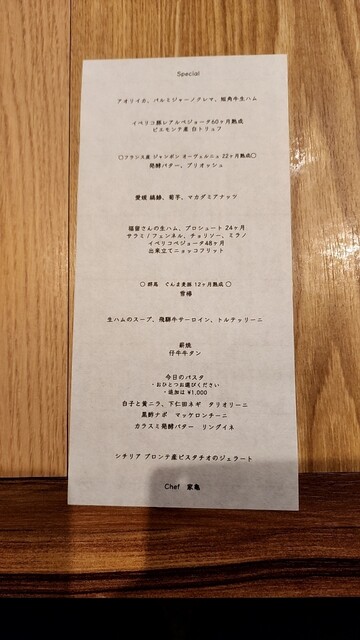 Special
アオリイカ、パルミジャーノクレマ、短角牛生ハム
イベリコ豚レアルベジョータ60ヶ月熟成
ピエモンテ産 白トリュフ
〇フランス産 ジャンボン オーヴェルニュ 22ヶ月熟成〇
発酵バター、ブリオッシュ
愛媛 縞鯵、菊芋、マカダミアナッツ
福留さんの生ハム、プロシュート 24ヶ月
サラミ/フェンネル、チョリソー、ミラノ
イベリコベジョータ48ヶ月
出来立てニョッコフリット
〇 群馬 ぐんま麦豚 12ヶ月熟成 〇
雪椿
生ハムのスープ、飛騨牛サーロイン、トルテッリーニ
薪焼
仔牛牛タン
今日のパスタ
・おひとつお選びください
・追加は ¥1,000
白子と黄ニラ、下仁田ネギ タリオリーニ
黒酢ナポ マッケロンチーニ
カラスミ発酵バター リングイネ
シチリア ブロンテ産ピスタチオのジェラート
Chef 家亀